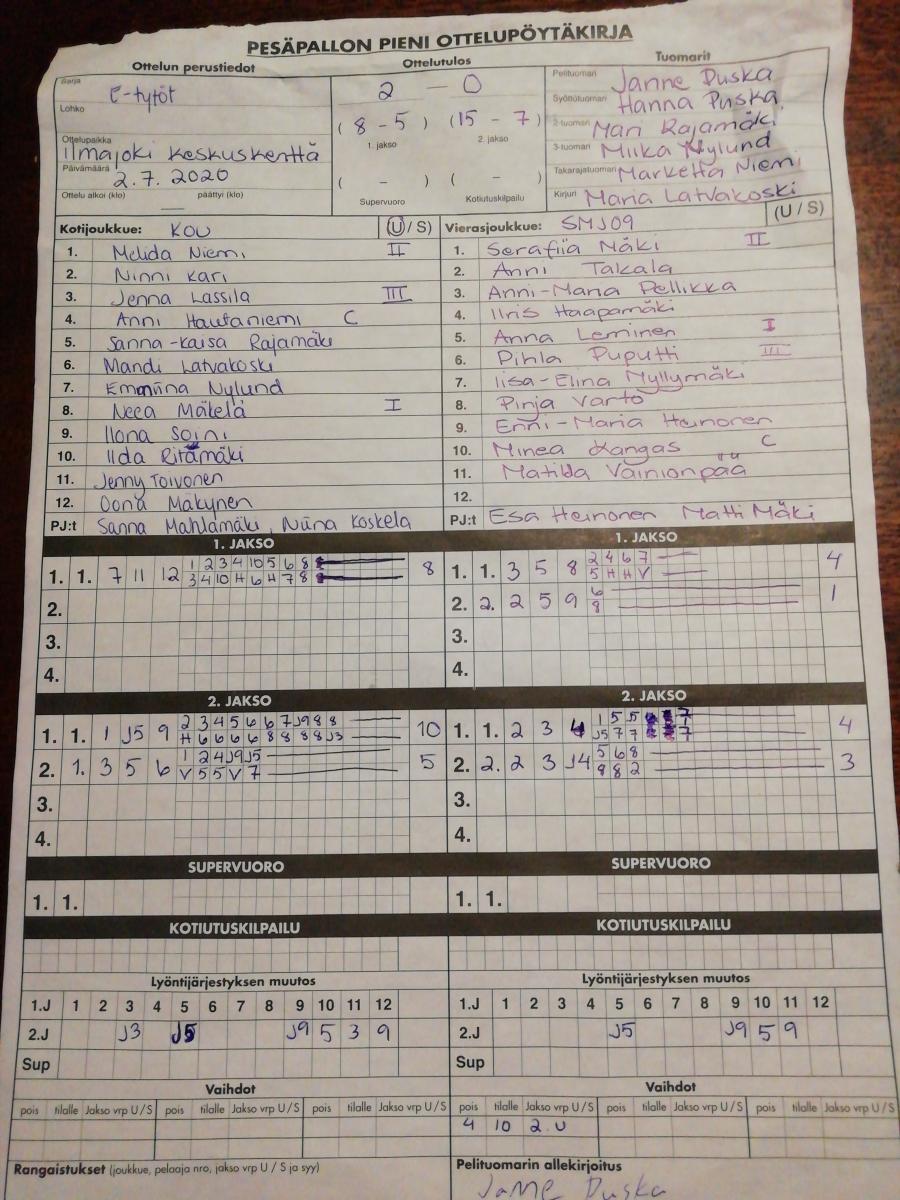 PESÄPALLON PIENI OTTELUPÖYTÄKIRJA
Ottelun perustiedot Ottelutulos Tuomarit
Sarja E-tytöt 2 - 0 Pelituomari Janne Puska
Lohko Syöttötuomari Hanna Puska
( 8 - 5 ) (15 - 7) 2-tuomari Mari Rajamäki
Ottelupaikka Ilmajoki Keskuskenttä 1. jakso 2. jakso 3-tuomari Miika Nylund
Päivämäärä 2.7.2020 Takarajatuomari Marketta Niemi
( - ) ( - )
Ottelu alkoi (klo) — päättyi (klo) Supervuoro Kotiutuskilpailu Kirjuri Maria Latvakoski
Kotijoukkue: KOU (U / S) Vierasjoukkue: SMJ09 (U / S)
1. Melida Niemi II 1. Serafiia Mäki II
2. Ninni Kari 2. Anni Takala
3. Jenna Lassila III 3. Anni-Maria Pellikka
4. Anni Hautaniemi C 4. Iiris Haapamäki
5. Sanna-Kaisa Rajamäki 5. Anna Leminen I
6. Mandi Latvakoski 6. Pihla Puputti III
7. Emmiina Nylund 7. Iisa-Elina Myllymäki
8. Neea Mäkelä I 8. Pinja Varto
9. Ilona Soini 9. Enni-Maria Heinonen
10. Iida Ritamäki 10. Minea Kangas C
11. Jenny Toivonen 11. Matilda Väinionpää
12. Oona Mäkynen 12.
PJ:t Sanna Mahlamäki, Niina Koskela PJ:t Esa Heinonen Matti Mäki
1. JAKSO 1. JAKSO
1. 1. 7 11 12 1 2 3 4 10 5 6 8 8 1. 1. 3 5 8 2 4 6 7 4
3 4 10 H 6 H 7 8 5 H H V
2. 2. 2. 2 5 9 6 1
8
3. 3.
4. 4.
2. JAKSO 2. JAKSO
1. 1. 1 J5 9 2 3 4 5 6 6 7 J9 8 8 10 1. 1. 2 3 4 1 5 5 7 4
H 6 6 6 6 8 8 8 8 J3 J5 7 7 7
2. 1. 3 5 6 1 2 4 J9 J5 5 2. 2. 2 3 J4 5 6 8 3
V 5 5 V 7 8 8 2
3. 3.
4. 4.
SUPERVUORO SUPERVUORO
1. 1. 1. 1.
KOTIUTUSKILPAILU KOTIUTUSKILPAILU
Lyöntijärjestyksen muutos Lyöntijärjestyksen muutos
1.J 1 2 3 4 5 6 7 8 9 10 11 12 1.J 1 2 3 4 5 6 7 8 9 10 11 12
2.J J3 J5 J9 5 3 9 2.J J5 J9 5 9
Sup Sup
Vaihdot Vaihdot
pois tilalle Jakso vrp U / S pois tilalle Jakso vrp U / S pois tilalle Jakso vrp U / S pois tilalle Jakso vrp U / S pois tilalle Jakso vrp U / S pois tilalle Jakso vrp U / S
4 10 2.U
Rangaistukset (joukkue, pelaaja nro, jakso vrp U / S ja syy) Pelituomarin allekirjoitus
Janne Puska